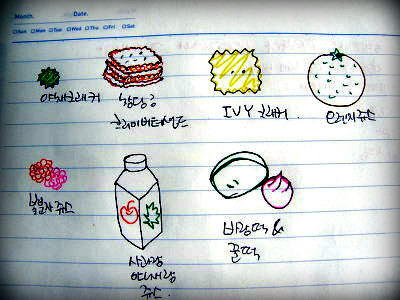 Month. Date.
□Sun □Mon □Tue □Wed □Thu □Fri □Sat
야채크래커
IVY 크래커
오렌지쥬스
복분자 쥬스
사과랑
야채랑
쥬스
바람떡 &
꿀떡